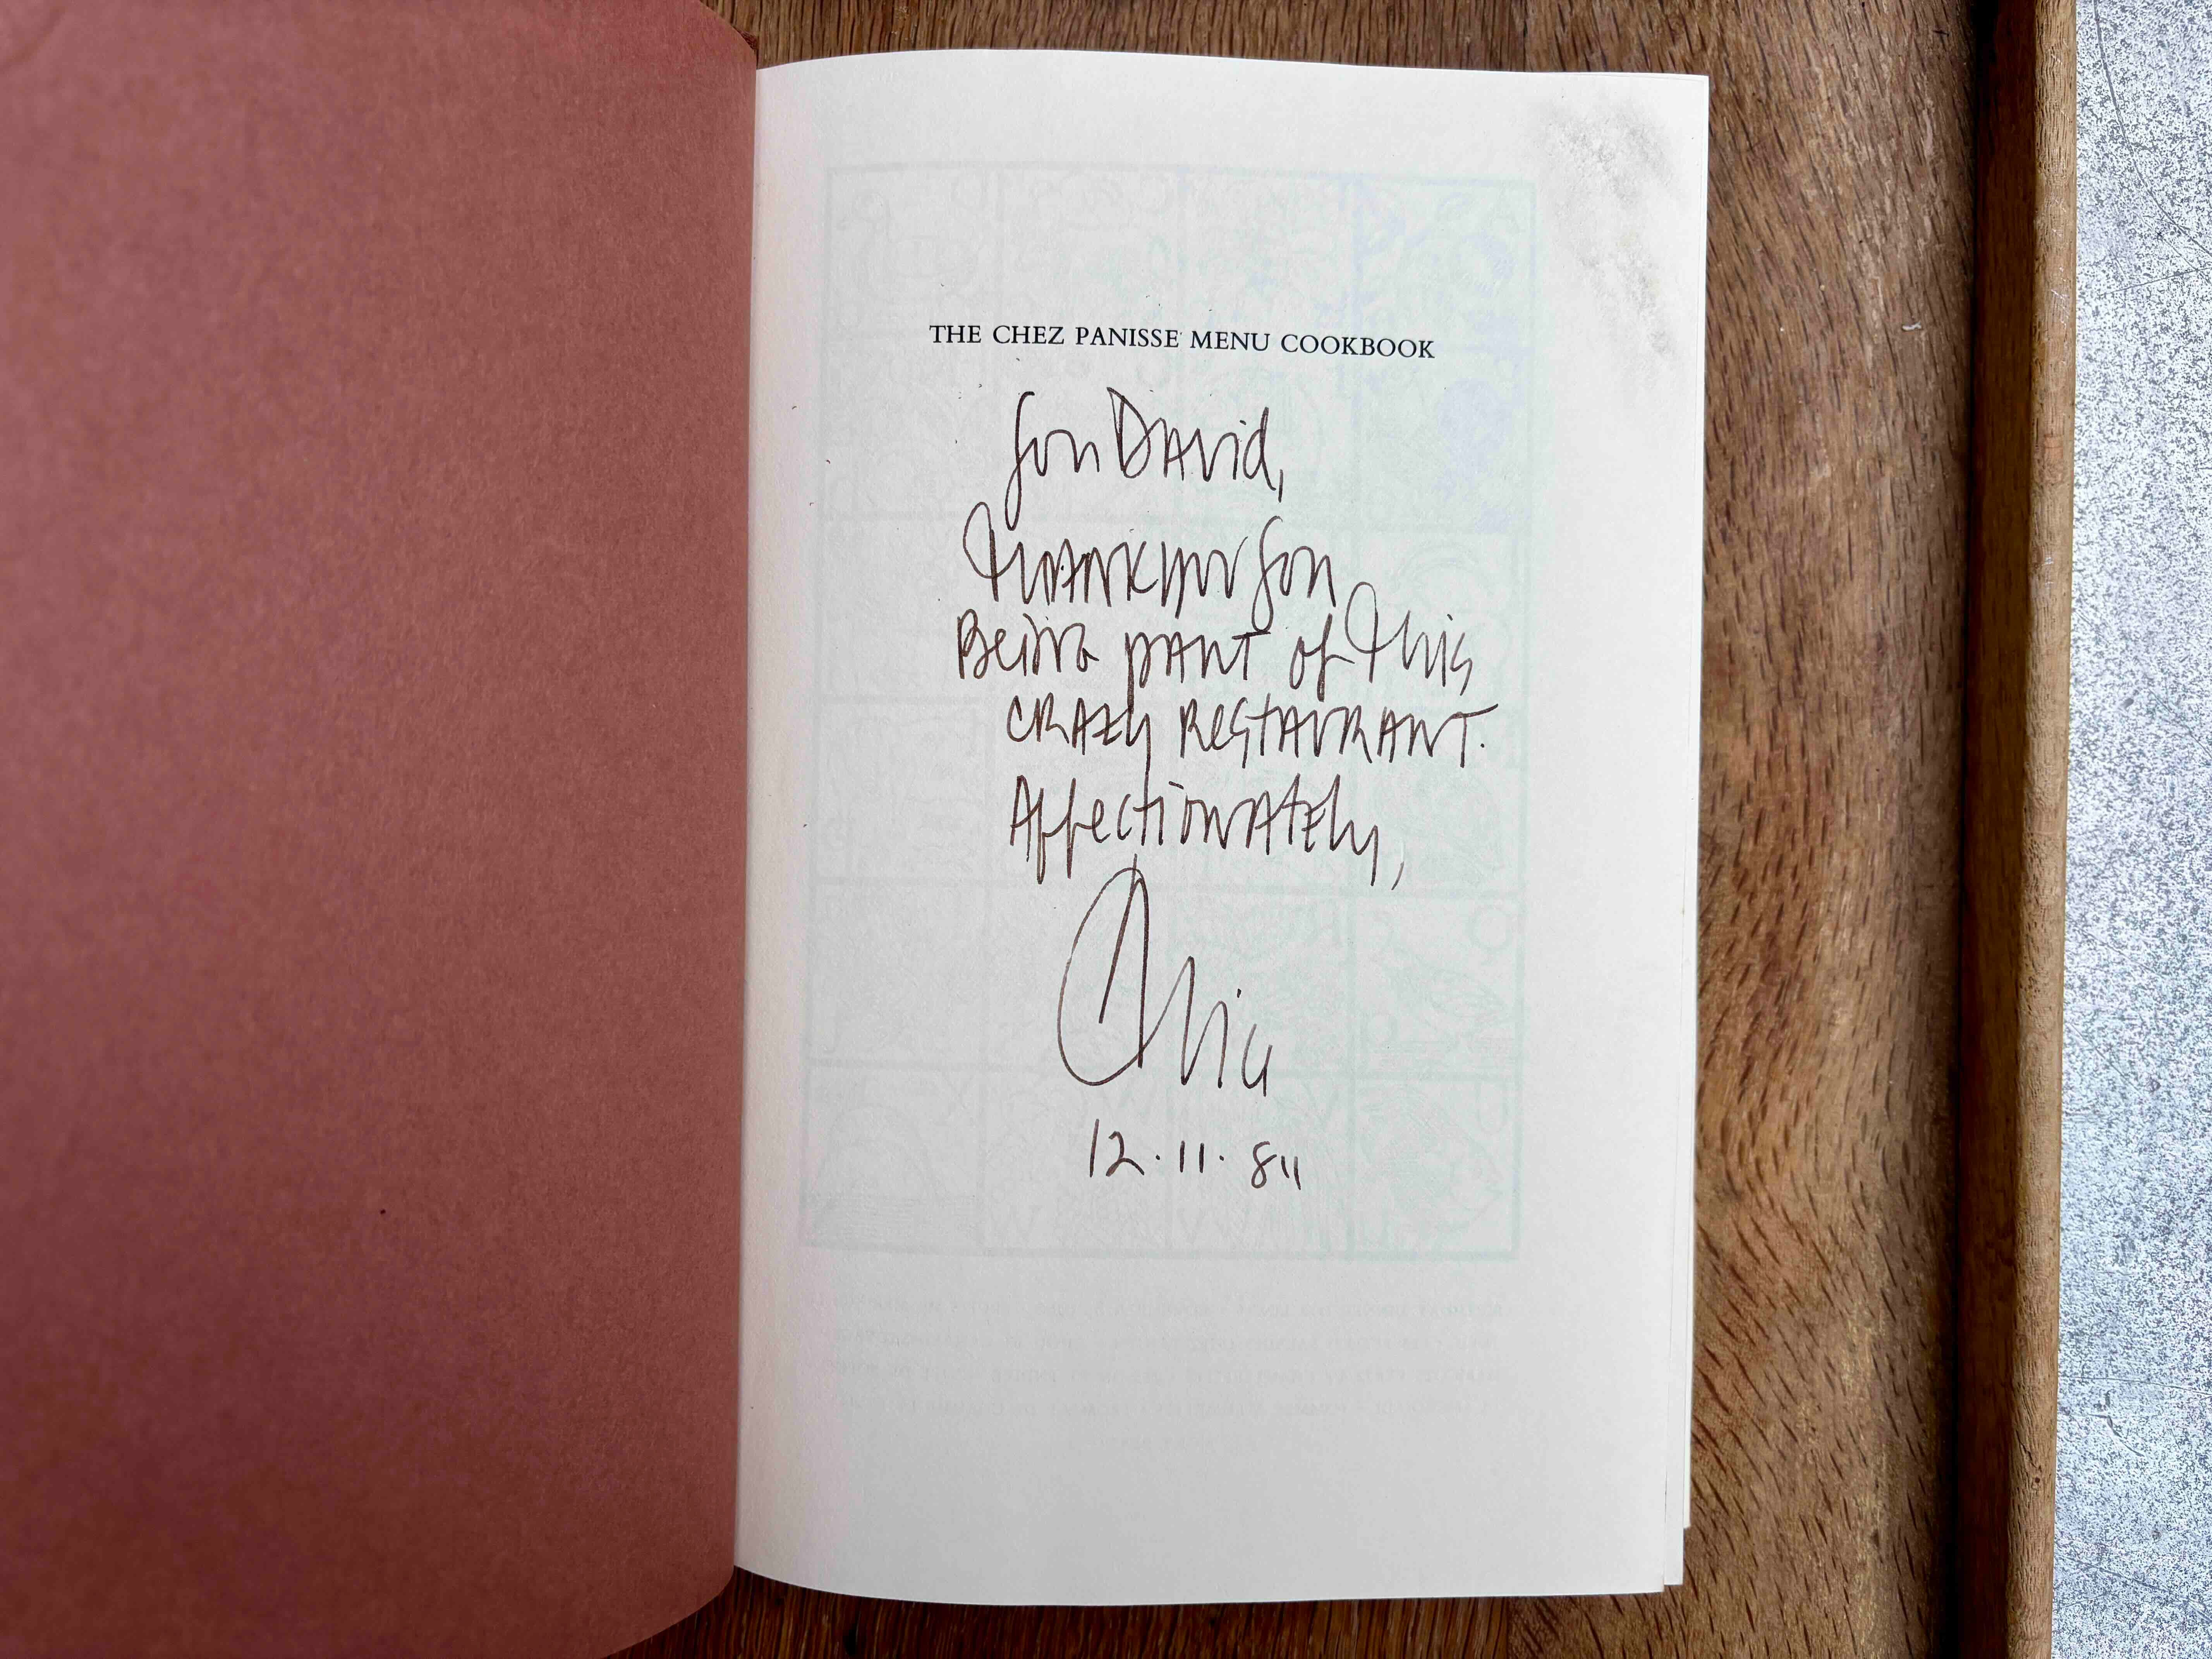 THE CHEZ PANISSE MENU COOKBOOK
for David,
Thank you for
Being part of this
crazy restaurant.
Affectionately,
Alice
12.11.84